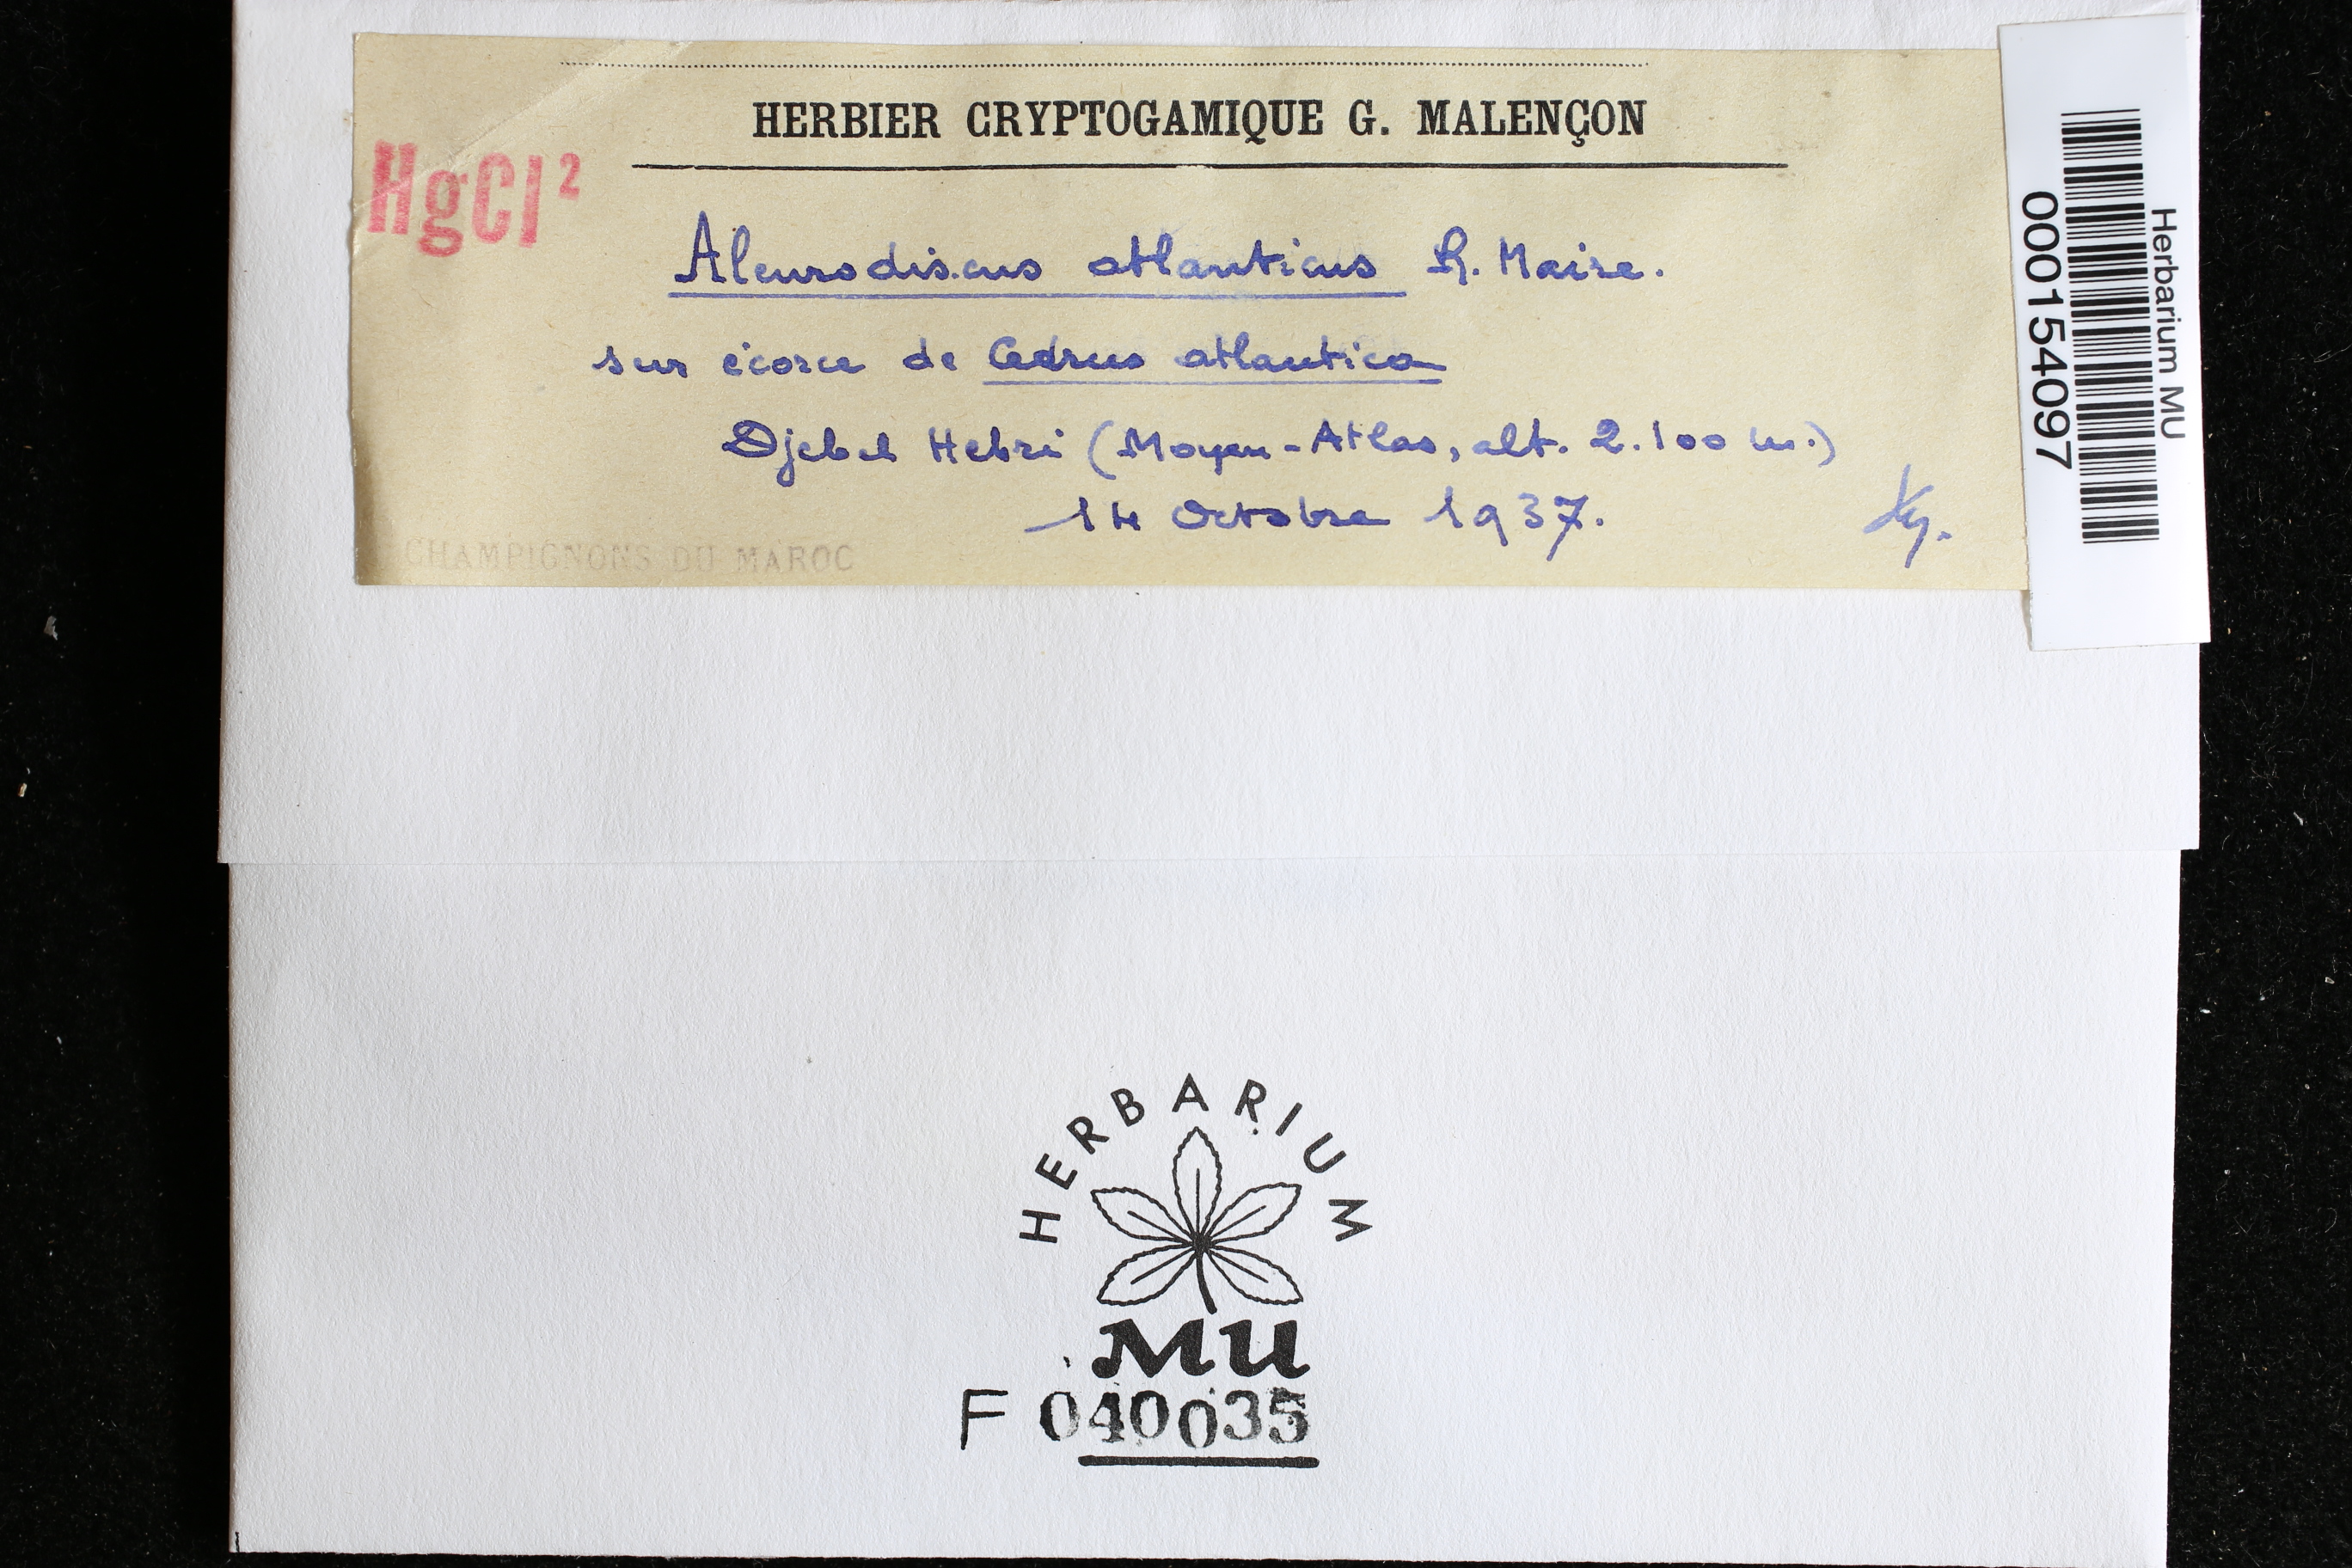 HERBIER CRYPTOGAMIQUE G. MALENÇON
HgCl²
Aleurodiscus atlanticus R. Maire.
sur écorce de Cedrus atlantica
Djebel Hebri (Moyen-Atlas, alt. 2.100 m.)
14 Octobre 1937.
CHAMPIGNONS DU MAROC
Herbarium MU
000154097
HERBARIUM
MU
F 040035